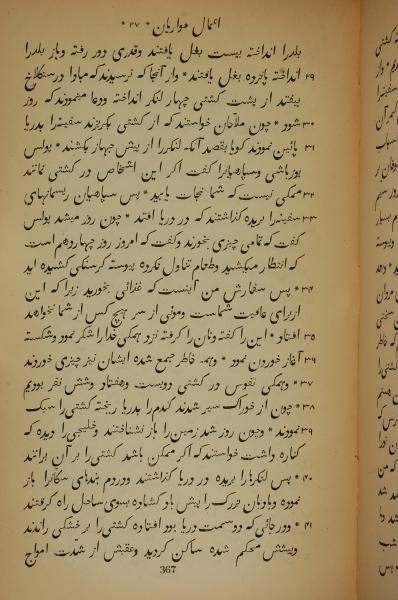 اعمال حواریان * ۲۷ *
بلدرا انداخته بیست بغل یافتند وقدری دور رفته وباز بلدرا
۲۹ انداخته پانزده بغل یافتند * واز آنجا که ترسیدند که مبادا در سنکلاخ
بیفتد از پشت کشتی چهار لنکر انداخته ودعا مینمودند که روز
۳۰ شود * چون ملّاحان خواستند که از کشتی بکریزند سفینه‌را بدریا
۳۱ پائین نمودند کویا بقصد آنکه لنکررا از پیش جهاز بکشند * پولس
یوزباشی وسپاهیانرا کفت اکر این اشخاص در کشتی نمانند
۳۲ ممکن نیست که شما نجات یابید * پس سپاهیان ریسمانهای
۳۳ سفینه‌را بریده کذاشتند که در دریا افتد * چون روز میشد پولس
کفت که تمامی چیزی بخورند وکفت که امروز روز چهاردهم است
که انتظار میکشید وطعام تناول نکرده پیوسته کرسنکی کشیده اید
۳۴ * پس سفارش من آنست که غذائی بخورید زیرا که این
ازبرای عافیت شماست وموئی از سر هیچ کس از شما نخواهد
۳۵ افتاد * این‌را کفته ونان را کرفته نزد همکی خدارا شکر نمود وشکسته
۳۶ آغاز خوردن نمود * وهمه خاطر جمع شده ایشان نیز چیزی خوردند
۳۷ * وهمکی نفوس در کشتی دویست وهفتاد وشش نفر بودیم
۳۸ * چون از خوراک سیر شدند کندم را بدریا ریخته کشتی را سبک
۳۹ نمودند * وچون روز شد زمین را باز نشناختند وخلیجی را دیده که
کناره داشت خواستند که اکر ممکن باشد کشتی را بر آن برانند
۴۰ * پس لنکرها را بریده در دریا کذاشتند ودر دم بندهای سکانرا باز
نموده وبادبان بزرک را پیش باد کشاده بسوی ساحل راه کرفتند
۴۱ * ودر جائی که دوسمت دریا بود افتاده کشتی را بر خشکی راندند
وپیشش محکم شده ساکن کردید وعقبش از شدّت امواج
367